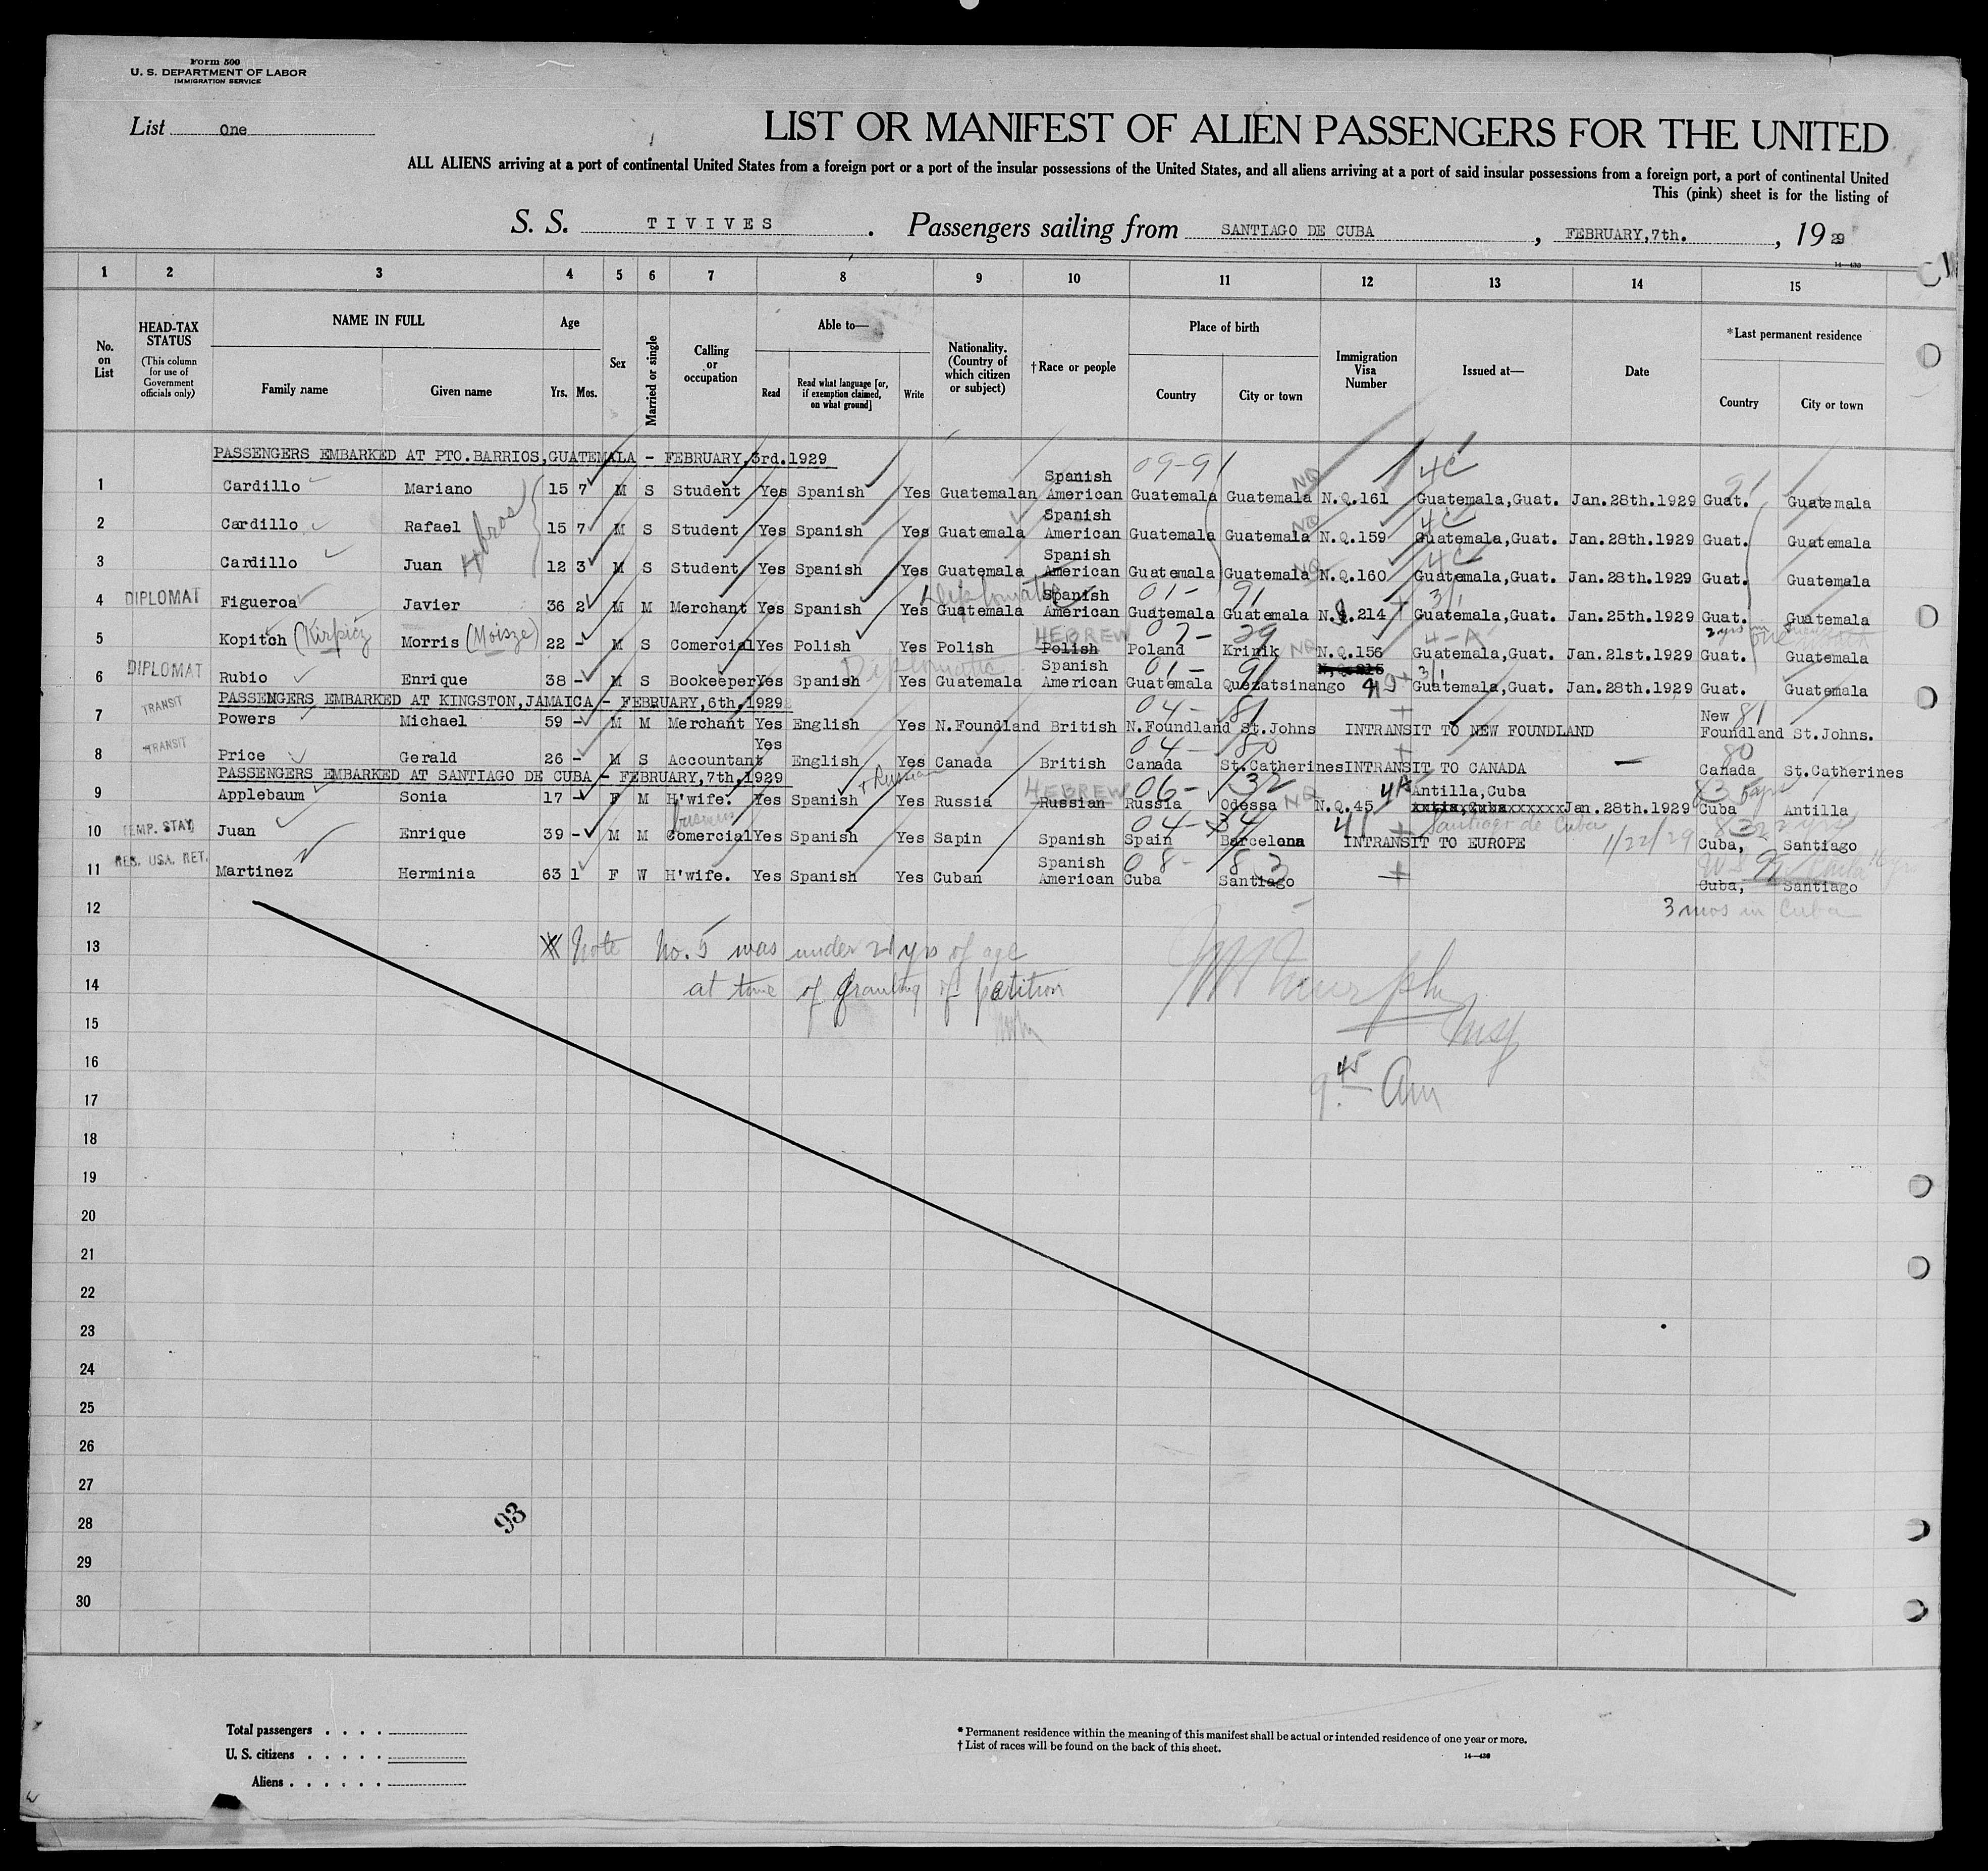 Form 500
U. S. DEPARTMENT OF LABOR
IMMIGRATION SERVICE
List One
LIST OR MANIFEST OF ALIEN PASSENGERS FOR THE UNITED
ALL ALIENS arriving at a port of continental United States from a foreign port or a port of the insular possessions of the United States, and all aliens arriving at a port of said insular possessions from a foreign port, a port of continental United
This (pink) sheet is for the listing of
S. S. TIVIVES. Passengers sailing from SANTIAGO DE CUBA, FEBRUARY,7th., 1929
14—430
1 2 3 4 5 6 7 8 9 10 11 12 13 14 15
No. on List
HEAD-TAX STATUS (This column for use of Government officials only)
NAME IN FULL Family name Given name
Age Yrs. Mos.
Sex
Married or single
Calling or occupation
Able to— Read Read what language [or, if exemption claimed, on what ground] Write
Nationality. (Country of which citizen or subject)
†Race or people
Place of birth Country City or town
Immigration Visa Number
Issued at—
Date
*Last permanent residence Country City or town
PASSENGERS EMBARKED AT PTO.BARRIOS,GUATEMALA - FEBRUARY,3rd.1929
1 Cardillo Mariano 15 7 M S Student Yes Spanish Yes Guatemalan Spanish American 09-91 Guatemala Guatemala NQ N.Q.161 4C Guatemala,Guat. Jan.28th.1929 Guat. 91 Guatemala
2 Cardillo Rafael 15 7 M S Student Yes Spanish Yes Guatemala Spanish American Guatemala Guatemala NQ N.Q.159 4C Guatemala,Guat. Jan.28th.1929 Guat. Guatemala
bros
3 Cardillo Juan 12 3 M S Student Yes Spanish Yes Guatemala Spanish American Guatemala Guatemala NQ N.Q.160 4C Guatemala,Guat. Jan.28th.1929 Guat. Guatemala
4 DIPLOMAT Figueroa Javier 36 2 M M Merchant Yes Spanish Yes Guatemala Diplomatic Spanish American 01-91 Guatemala Guatemala 214 3/1 Guatemala,Guat. Jan.25th.1929 Guat. Guatemala
5 Kopitch (Kirpicz) Morris (Moisze) 22 - M S Comercial Yes Polish Yes Polish HEBREW Polish 07-29 Poland Krinik NQ N.Q.156 4-A Guatemala,Guat. Jan.21st.1929 2 yrs in Guat. Guatemala
6 DIPLOMAT Rubio Enrique 38 - M S Bookeeper Yes Spanish Diplomatic Yes Guatemala Spanish American 01-91 Guatemala Quezatsinango N.Q.215 3/1 Guatemala,Guat. Jan.28th.1929 Guat. Guatemala
PASSENGERS EMBARKED AT KINGSTON,JAMAICA - FEBRUARY,6th,1929
7 TRANSIT Powers Michael 59 - M M Merchant Yes English Yes N.Foundland British 04-81 N.Foundland St.Johns INTRANSIT TO NEW FOUNDLAND New Foundland 81 St.Johns.
8 TRANSIT Price Gerald 26 - M S Accountant Yes English Yes Canada British 04-80 Canada St.Catherines INTRANSIT TO CANADA — 80 Canada St.Catherines
PASSENGERS EMBARKED AT SANTIAGO DE CUBA - FEBRUARY,7th,1929
9 Applebaum Sonia 17 - F M H'wife. Yes Spanish + Russian Yes Russia HEBREW Russian 06-32 Russia Odessa NQ N.Q.45 4A Antilla,Cuba Jan.28th.1929 Cuba Antilla
10 TEMP. STAY Juan Enrique 39 - M M Comercial Yes Spanish Yes Sapin Spanish 04-34 Spain Barcelona 41 Santiago de Cuba INTRANSIT TO EUROPE 1/22/29 Cuba, Santiago
11 RES. USA. RET. Martinez Herminia 63 1 F W H'wife. Yes Spanish Yes Cuban Spanish American 08-83 Cuba Santiago Cuba, Santiago
12 3 mos in Cuba
13 Note No. 5 was under 21 yrs of age
14 at time of granting of petition
15
16 9.45 Am
17
18
19
20
21
22
23
24
25
26
27
28 93
29
30
Total passengers . . . .
U. S. citizens . . . . .
Aliens . . . . . .
* Permanent residence within the meaning of this manifest shall be actual or intended residence of one year or more.
† List of races will be found on the back of this sheet.
14—430